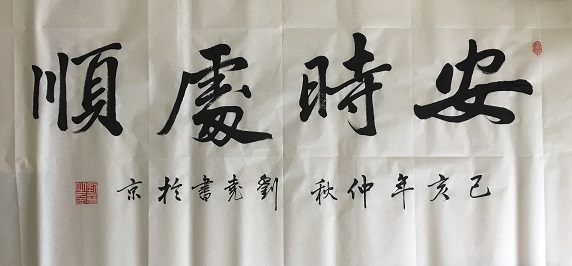 安時處順
己亥年仲秋 劉堯書於京